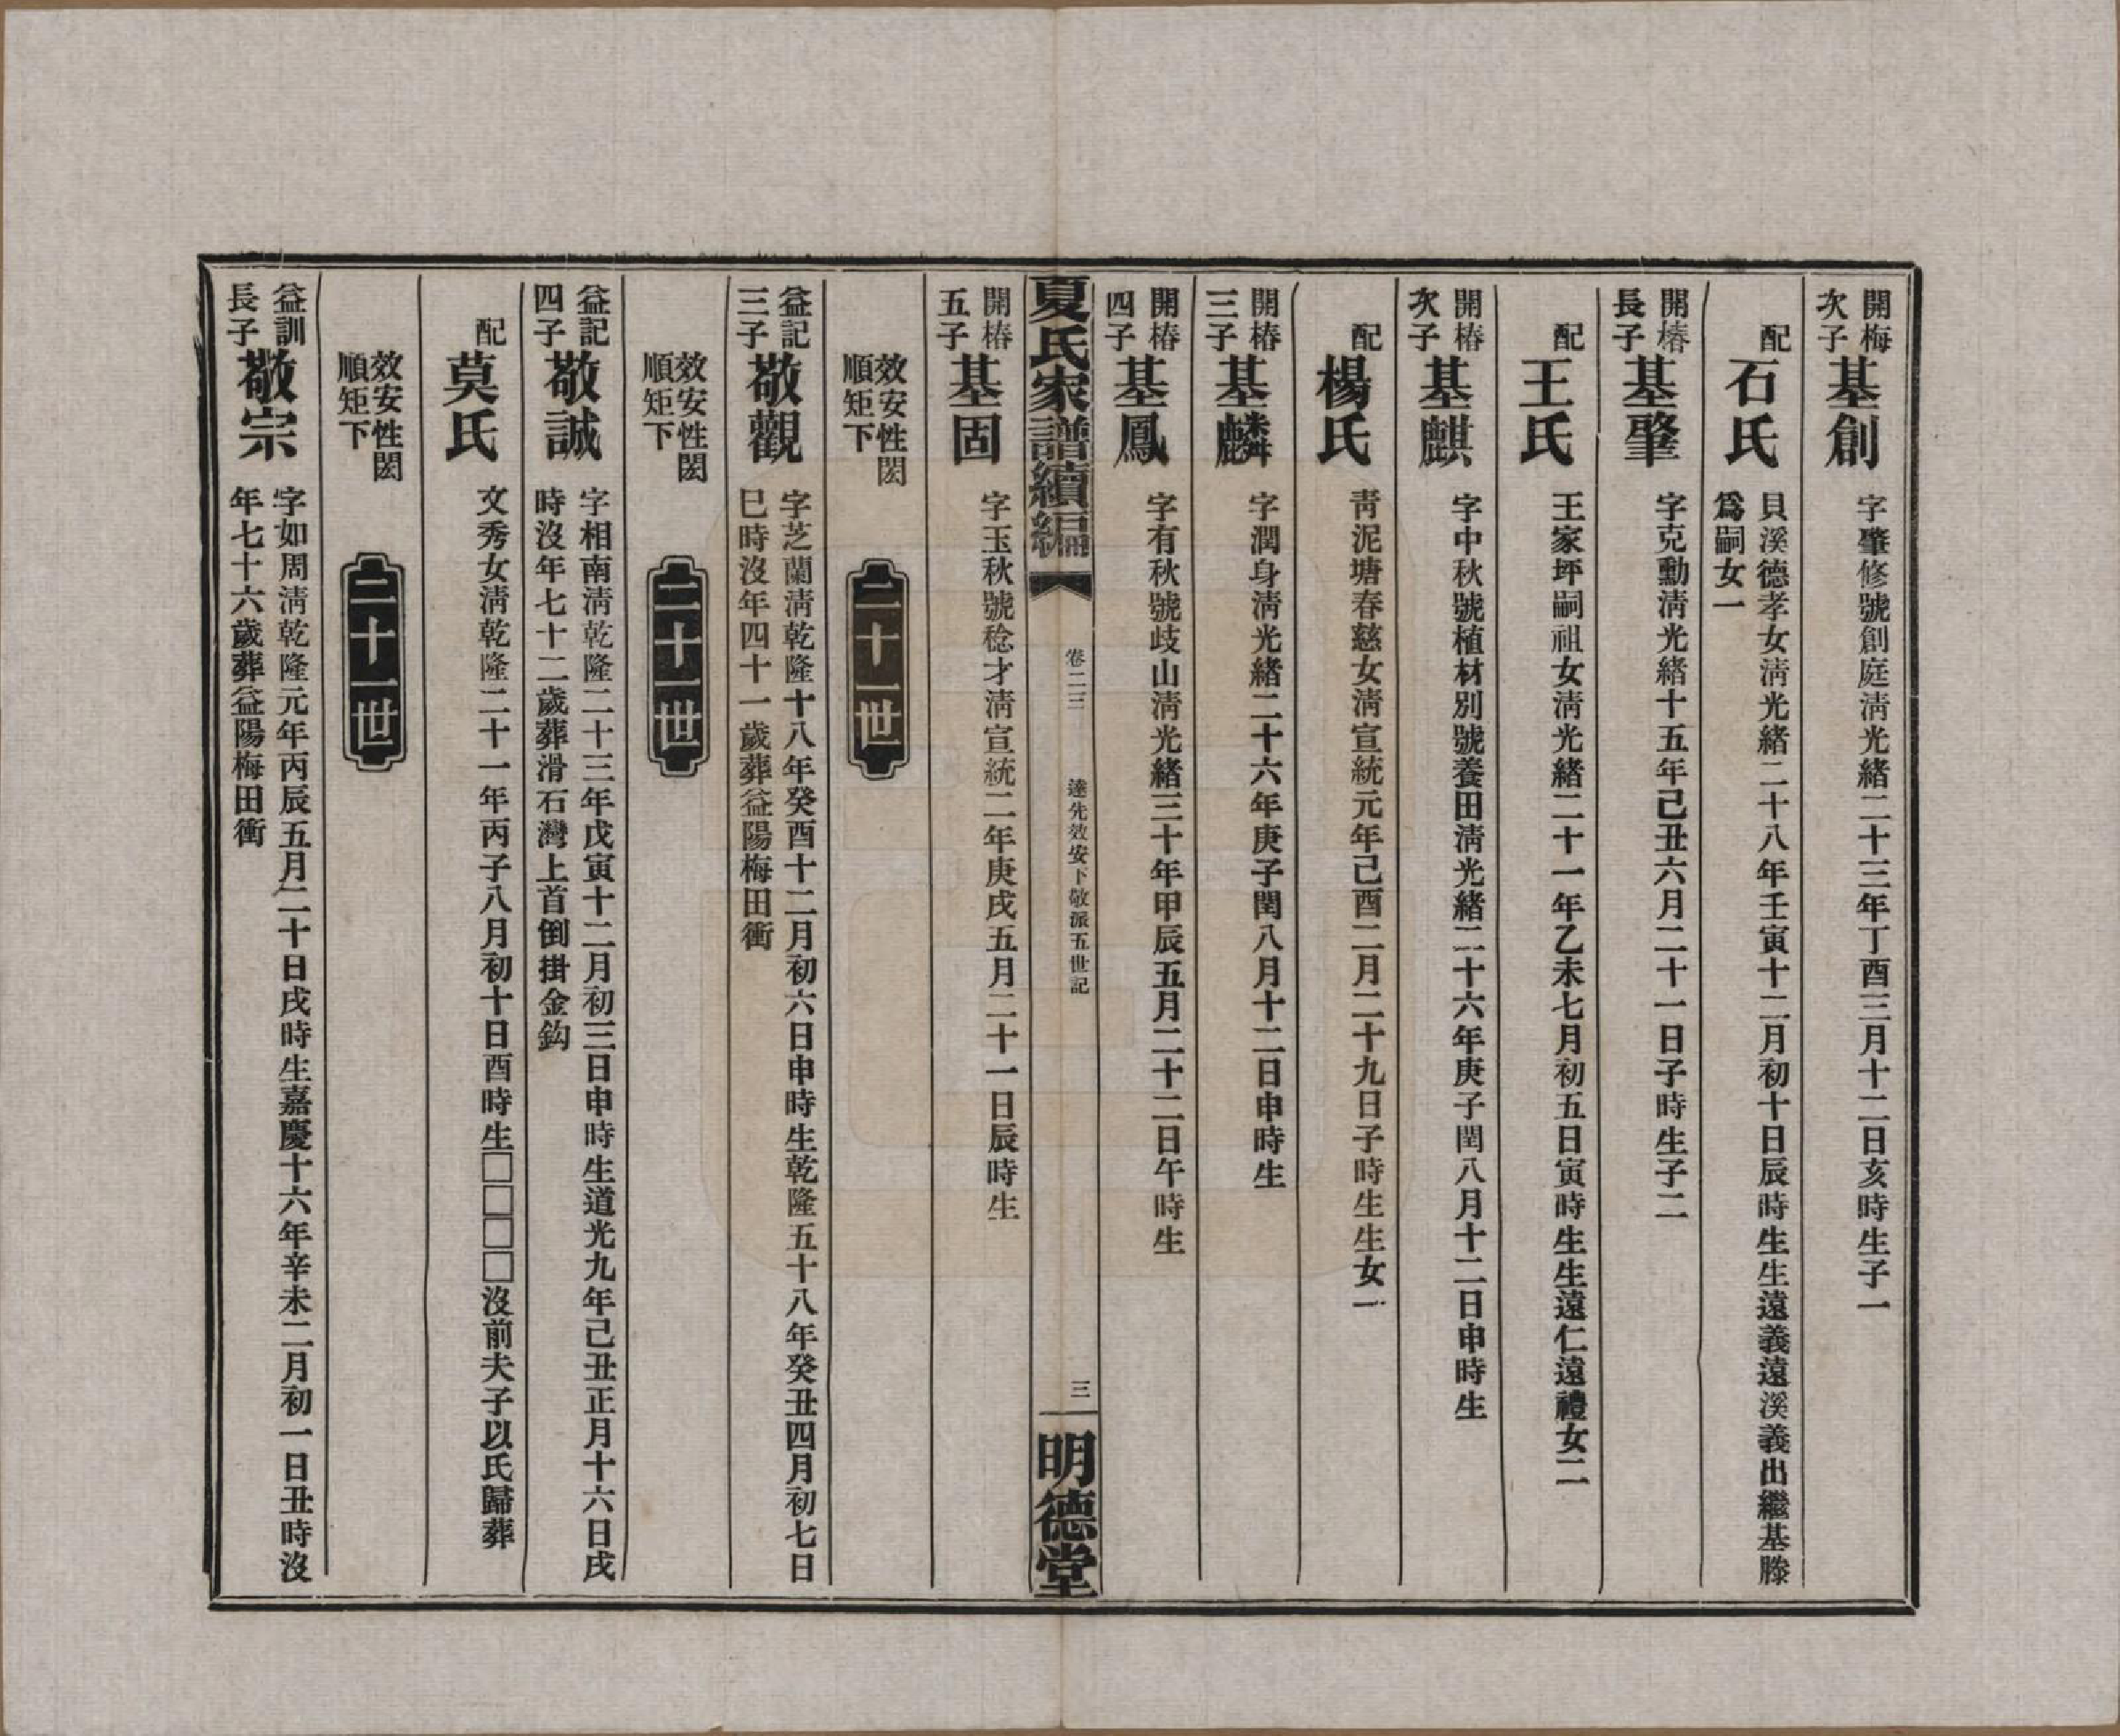 開梅
次子
基創
字肇修號創庭淸光緒二十三年丁酉三月十二日亥時生子一
配
石氏
貝溪德孝女淸光緒二十八年壬寅十二月初十日辰時生生遠義遠溪義出繼基滕
爲嗣女一
開椿
長子
基肇
字克勳淸光緒十五年己丑六月二十一日子時生子二
配
王氏
王家坪嗣祖女淸光緒二十一年乙未七月初五日寅時生生遠仁遠禮女二
開椿
次子
基麒
字中秋號植材別號養田淸光緒二十六年庚子閏八月十二日申時生
配
楊氏
靑泥塘春慈女淸宣統元年己酉二月二十九日子時生生女一
開椿
三子
基麟
字潤身淸光緒二十六年庚子閏八月十二日申時生
開椿
四子
基鳳
字有秋號歧山淸光緒三十年甲辰五月二十二日午時生
夏氏家譜續編
卷二三
達先效安下敬派五世記
三
明德堂
開椿
五子
基固
字玉秋號稔才淸宣統二年庚戌五月二十一日辰時生
效安性閎
順矩下
二十一世
益記
三子
敬觀
字芝蘭淸乾隆十八年癸酉十二月初六日申時生乾隆五十八年癸丑四月初七日
巳時沒年四十一歲葬益陽梅田衝
效安性閎
順矩下
二十一世
益記
四子
敬誠
字相南淸乾隆二十三年戊寅十二月初三日申時生道光九年己丑正月十六日戌
時沒年七十二歲葬滑石灣上首倒掛金鈎
配
莫氏
文秀女淸乾隆二十一年丙子八月初十日酉時生□□□□沒前夫子以氏歸葬
效安性閎
順矩下
二十一世
益訓
長子
敬宗
字如周淸乾隆元年丙辰五月二十日戌時生嘉慶十六年辛未二月初一日丑時沒
年七十六歲葬益陽梅田衝